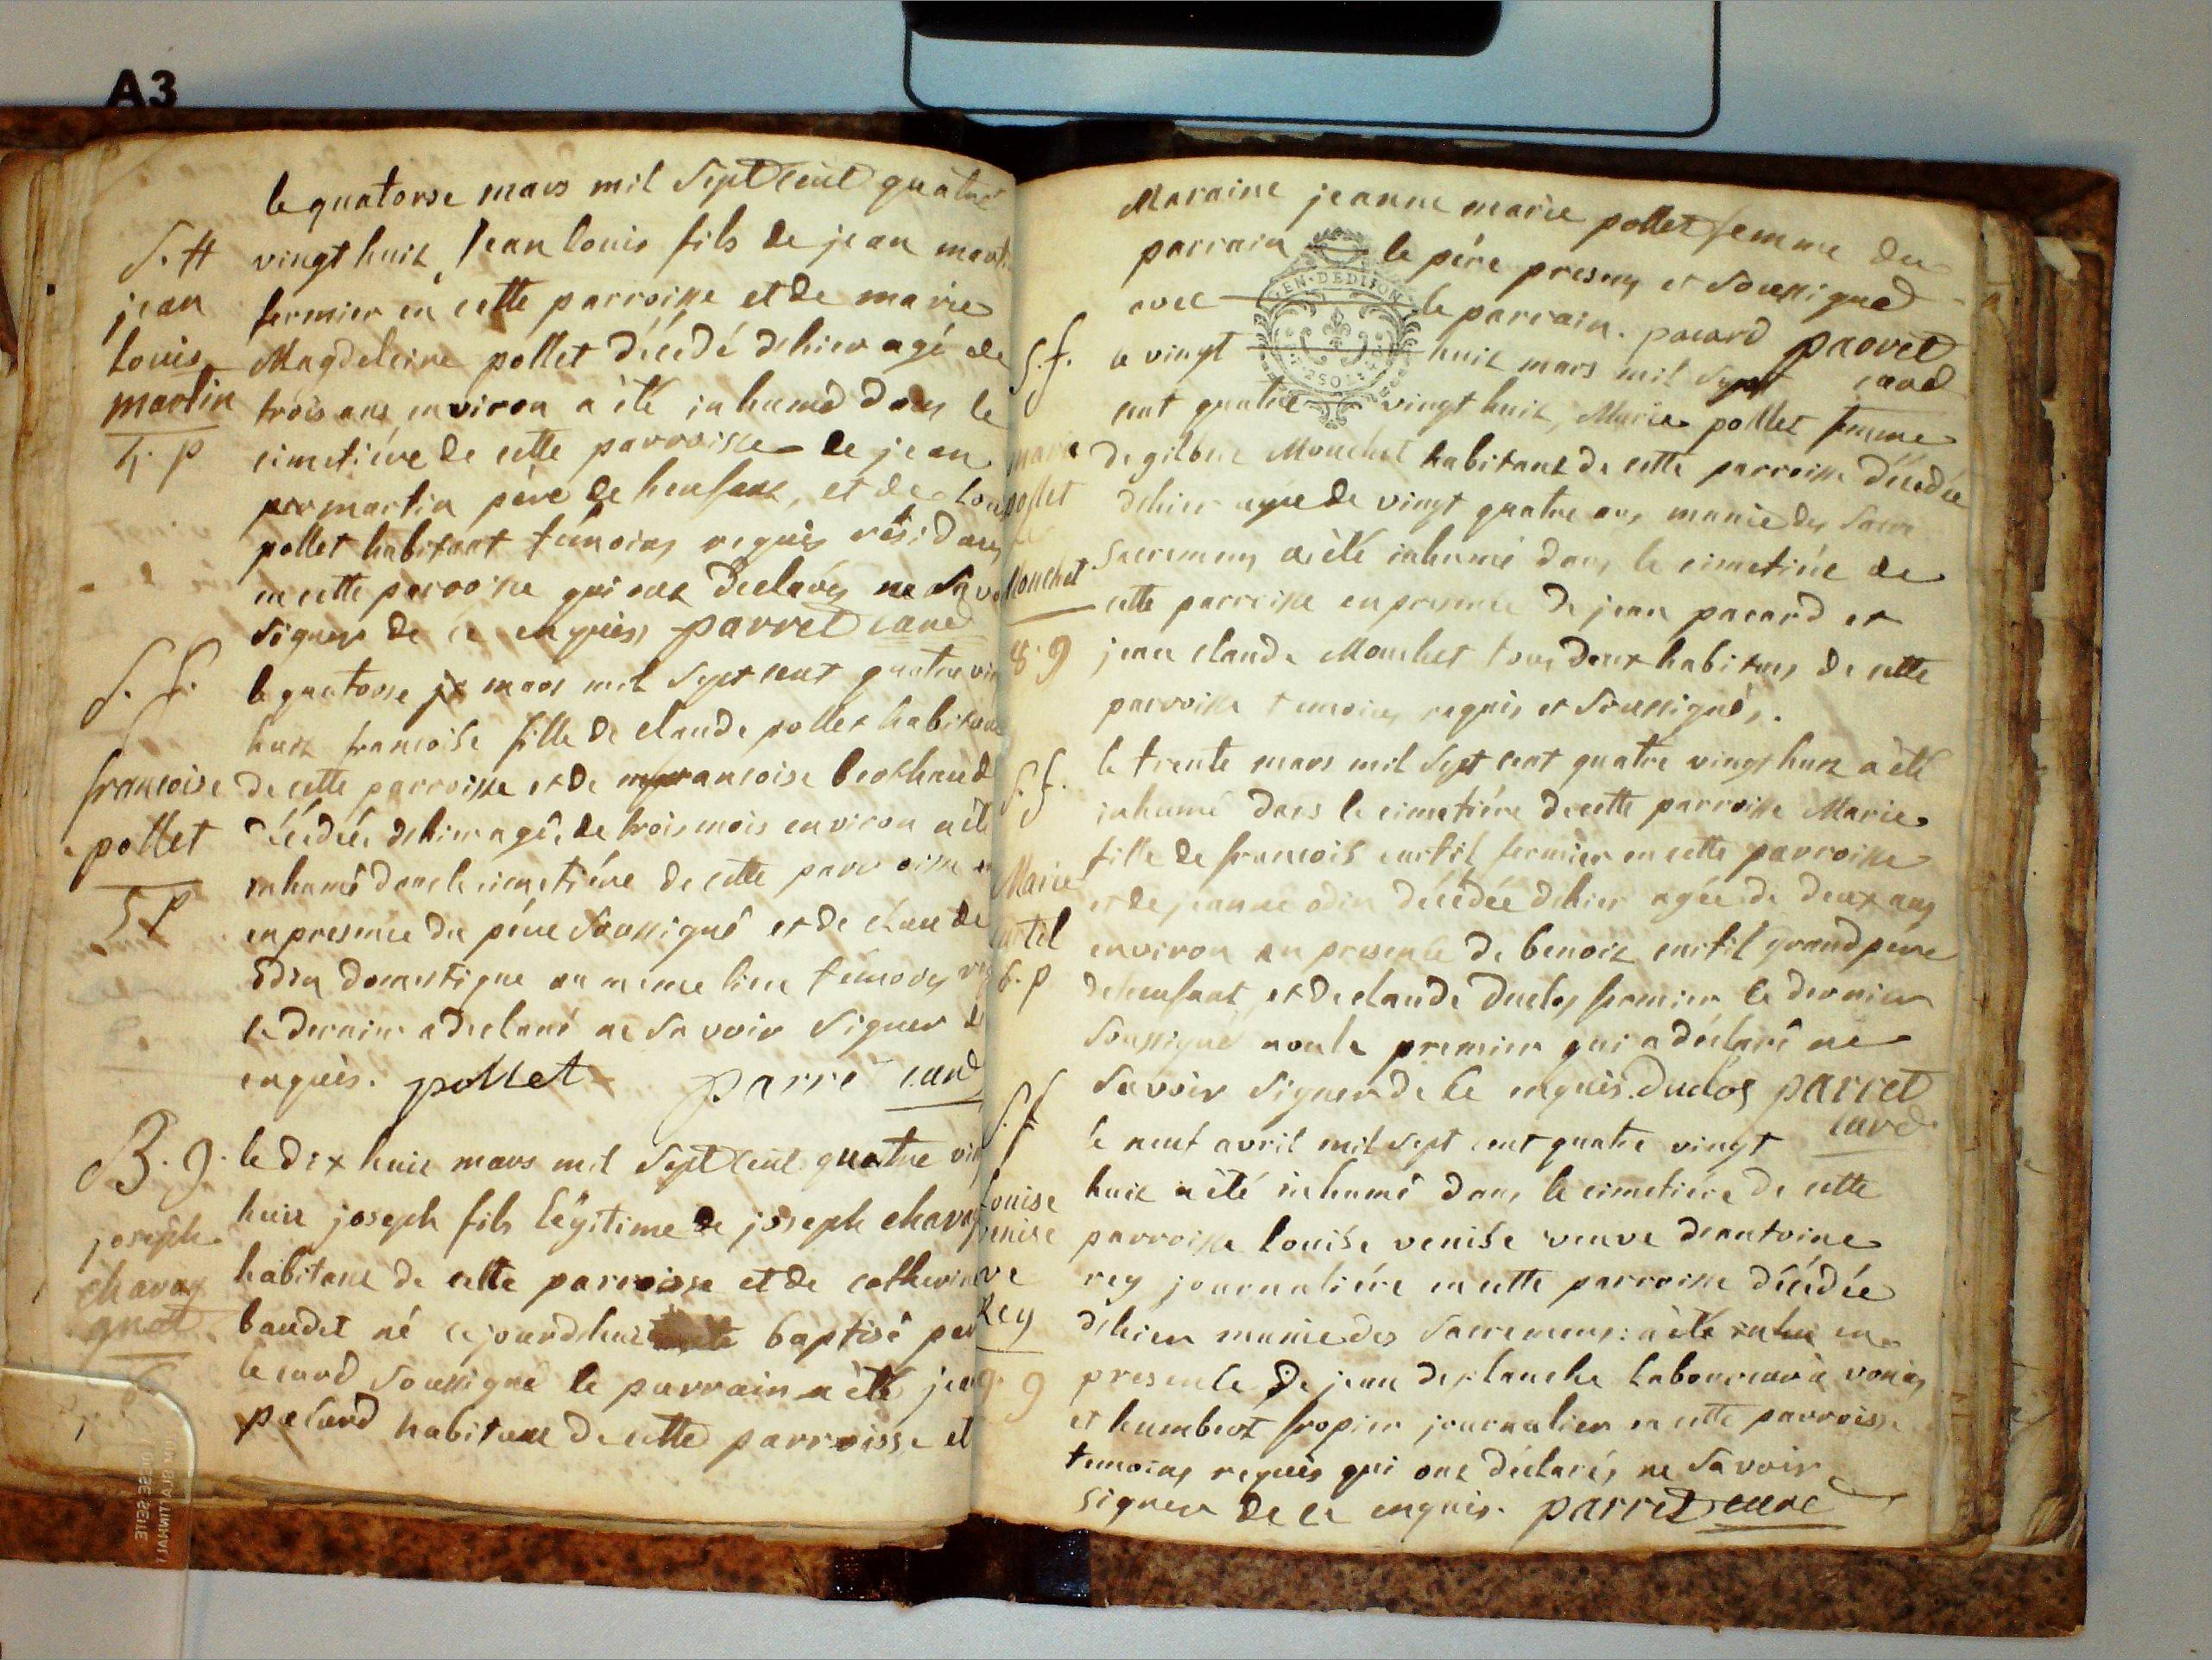 A3
le quatorse mars mil Sept cent quatre
vingt huit, Jean louis fils de jean marti
fermier en cette parroisse et de marie
Magdeleine pollet décédé d'hier agé de
trois ans environ a été inhumé dans le
cimetiére de cette parroisse de jean
martin pere de henfant, et de
pollet habitant témoins requis résidans
en cette parroisse qui ont declarés ne
signer de ce enquis parret curé
S. H
jean
louis
martin
le quatorse mars mil Sept cent quatre vin
huit francoise fille de claude pollet habitant
de cette parroisse et de francoise berthaud
décédée d'hier agé de trois mois environ a été
inhumé dans le cimetiére de cette parroisse
en presence du pére soussigné et de claude
odin domestique au meme lieu témoins
le dernier a declaré ne savoir signer de
enquis. pollet parret curé
S. f.
francoise
pollet
le dix huit mars mil Sept cent quatre vin
huit joseph fils légitime de joseph chavag
habitant de cette parroisse et de catherine
baudet né cejourdhui baptisé par
le curé soussigné le parrain a été jean
pacard habitant de cette parroisse et
B. J.
joseph
chavag
gnat
Maraine jeanne marie pollet femme du
parrain le pére presens et soussigné
avec le parrain. pacard parret
curé
GEN. DE DIJON
le vingt huit mars mil Sept
cent quatre vingt huit, Marie pollet femme
de gilbert Mouchet habitant de cette parroisse décédée
d'hier agée de vingt quatre ans munie des
sacremens a été inhumé dans le cimetiére de
cette parroisse en presence de jean pacard et
jean claude Mouchet tous deux habitans de cette
parroisse temoins requis et soussignés.
S. f.
marie
pollet
Mouchet
le trente mars mil Sept cent quatre vingt huit a été
inhumé dans le cimetiére de cette parroisse Marie
fille de francois curtil fermier en cette parroisse
et de jeanne odin décédée d'hier agée de deux ans
environ en presence de benoit curtil grand pére
de lenfant, et de claude duclos fermier le dernier
soussigné non le premier qui a déclaré ne
savoir signer de ce enquis. Duclos parret
curé
S. f.
Marie
curtil
le neuf avril mil sept cent quatre vingt
huit a été inhumé dans le cimetiére de cette
parroisse louise venise veuve dantoine
rey journaliére en cette parroisse décédée
d'hier munie des sacremens: a été en
presence de jean desplanche laboureur à
et humbert fropier journalier en cette parroisse
temoins requis qui ont déclarés ne savoir
signer de ce enquis. parret curé
S. f
Louise
venise
ve
Rey